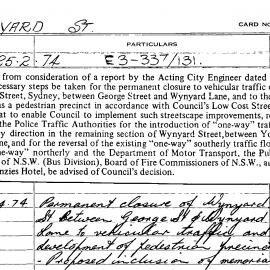 YARD St.
CARD NO
PARTICULARS
25.2.74 E3-337/131.
from consideration of a report by the Acting City Engineer dated
cessary steps be taken for the permanent closure to vehicular traffic
Street, Sydney, between George Street and Wynyard Lane, and to the
as a pedestrian precinct in accordance with Council's Low Cost Street
at to enable Council to implement such streetscape improvements, re
the Police Traffic Authorities for the introduction of "one-way" traf
y direction in the remaining section of Wynyard Street, between Yo
ne, and for the reversal of the existing "one-way" southerly traffic flo
ne-way" northerly and the Department of Motor Transport, the Pul
of N.S.W. (Bus Division), Board of Fire Commissioners of N.S.W., a
nzies Hotel, be advised of Council's decision.
4.74 Permanent closure of Wynyard
St between George St & Wynyard
Lane to vehicular traffic and
development of pedestrian precinc
- Proposed inclusion of memoria